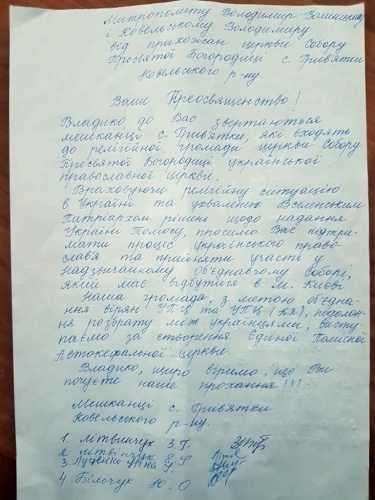 Митрополиту Володимир Волинському
і Ковельському Володимиру
від прихожан церкви Собору
Пресвятої Богородиці с. Гривятки
Ковельського р-ну.
Ваше Преосвященство!
Владико до Вас звертаються
мешканці с. Гривятки, які входять
до релігійної громади церкви Собору
Пресвятої Богородиці української
православної церкви.
Враховуючи релігійну ситуацію
в Україні та ухвалення Вселенським
Патріархом рішення щодо надання
Україні Томосу, просимо Вас підтри-
мати процес українського право-
славя та прийняти участь у
Надзвичайному Об'єднавчому Соборі,
який має відбутися в м. Києві
Наша громада, з метою об'єдна-
ння вірян УПЦ та УПЦ (КП), подолан-
ня розбрату між українцями, висту-
паємо за створення Єдиної Помісної
Автокефальної церкви.
Владико, щиро віримо, що Ви
почуєте наше прохання!!!
Мешканці с. Гривятки
Ковельського р-ну.
1. Літвінчук З.Г.
2. Літвінчук Є.Г.
3. Луценко У.
4 Білочук Ю.О